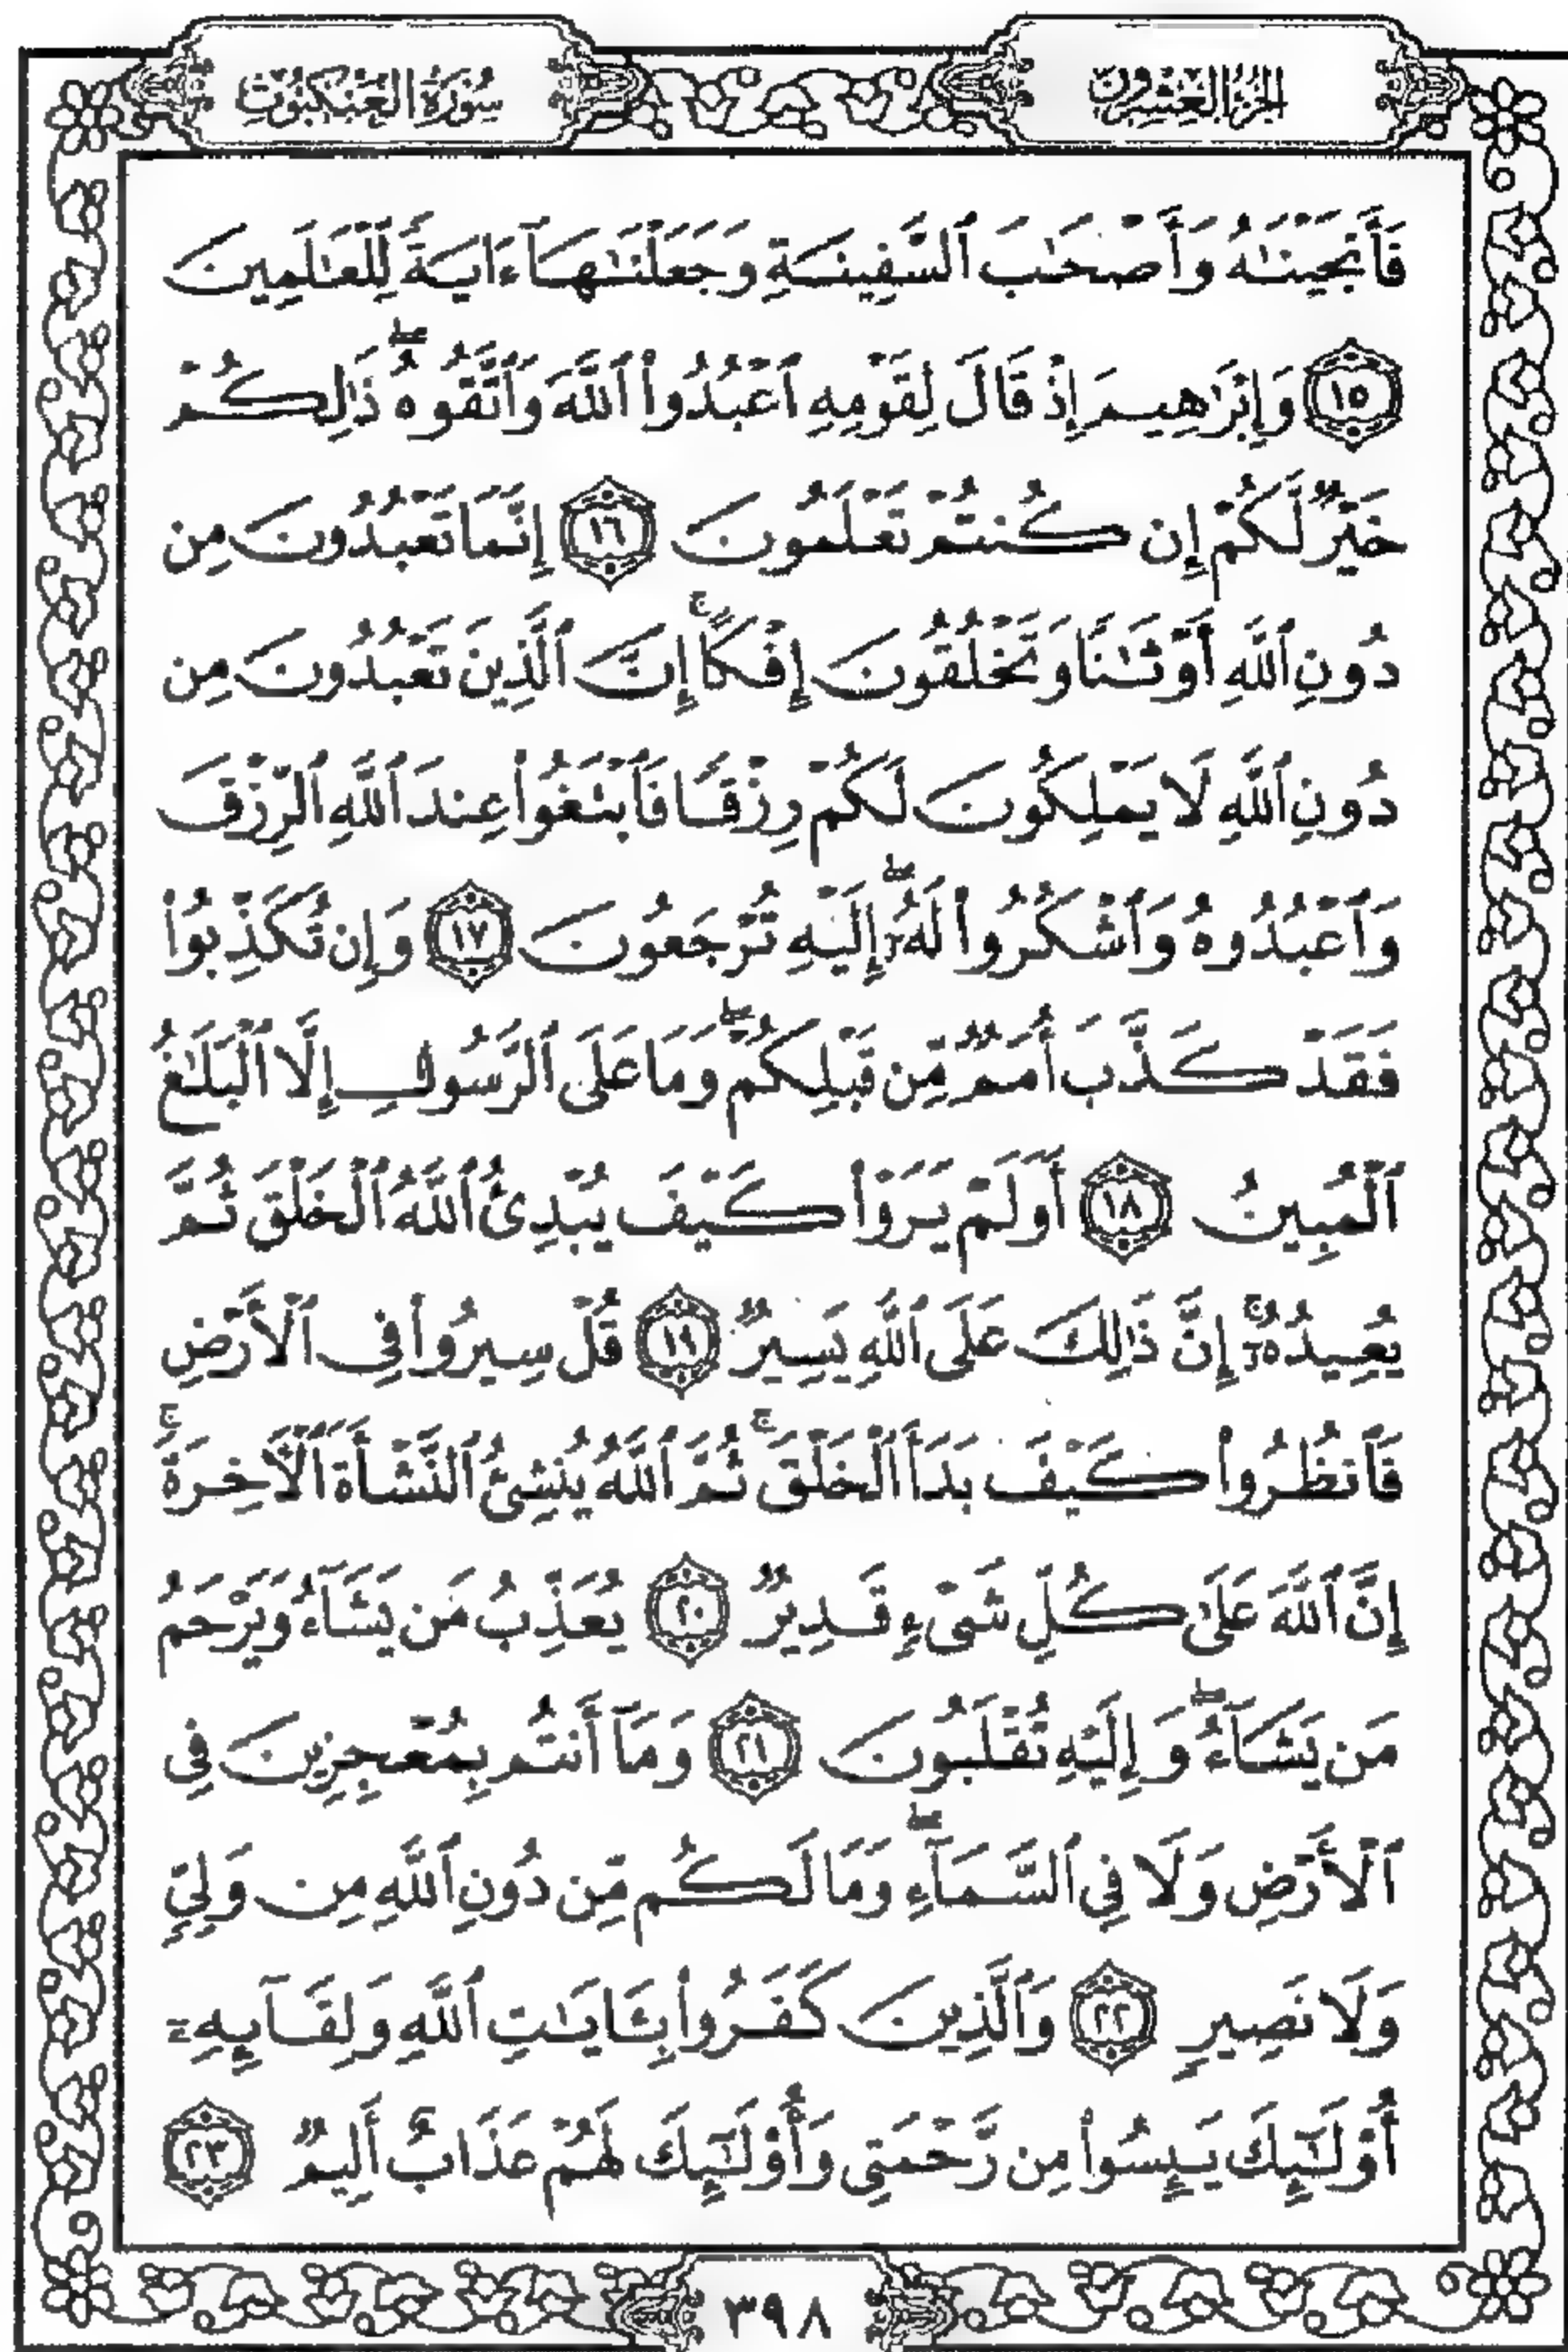 الجزء العشرون
سورة العنكبوت
فَأَنجَيْنَـٰهُ وَأَصْحَـٰبَ ٱلسَّفِينَةِ وَجَعَلْنَـٰهَآ ءَايَةً لِّلْعَـٰلَمِينَ
﴿١٥﴾ وَإِبْرَٰهِيمَ إِذْ قَالَ لِقَوْمِهِ ٱعْبُدُوا۟ ٱللَّهَ وَٱتَّقُوهُ ۖ ذَٰلِكُمْ
خَيْرٌ لَّكُمْ إِن كُنتُمْ تَعْلَمُونَ ﴿١٦﴾ إِنَّمَا تَعْبُدُونَ مِن
دُونِ ٱللَّهِ أَوْثَـٰنًا وَتَخْلُقُونَ إِفْكًا ۚ إِنَّ ٱلَّذِينَ تَعْبُدُونَ مِن
دُونِ ٱللَّهِ لَا يَمْلِكُونَ لَكُمْ رِزْقًا فَٱبْتَغُوا۟ عِندَ ٱللَّهِ ٱلرِّزْقَ
وَٱعْبُدُوهُ وَٱشْكُرُوا۟ لَهُۥٓ ۖ إِلَيْهِ تُرْجَعُونَ ﴿١٧﴾ وَإِن تُكَذِّبُوا۟
فَقَدْ كَذَّبَ أُمَمٌ مِّن قَبْلِكُمْ ۖ وَمَا عَلَى ٱلرَّسُولِ إِلَّا ٱلْبَلَـٰغُ
ٱلْمُبِينُ ﴿١٨﴾ أَوَلَمْ يَرَوْا۟ كَيْفَ يُبْدِئُ ٱللَّهُ ٱلْخَلْقَ ثُمَّ
يُعِيدُهُۥٓ ۚ إِنَّ ذَٰلِكَ عَلَى ٱللَّهِ يَسِيرٌ ﴿١٩﴾ قُلْ سِيرُوا۟ فِى ٱلْأَرْضِ
فَٱنظُرُوا۟ كَيْفَ بَدَأَ ٱلْخَلْقَ ۚ ثُمَّ ٱللَّهُ يُنشِئُ ٱلنَّشْأَةَ ٱلْـَٔاخِرَةَ ۚ
إِنَّ ٱللَّهَ عَلَىٰ كُلِّ شَىْءٍ قَدِيرٌ ﴿٢٠﴾ يُعَذِّبُ مَن يَشَآءُ وَيَرْحَمُ
مَن يَشَآءُ ۖ وَإِلَيْهِ تُقْلَبُونَ ﴿٢١﴾ وَمَآ أَنتُم بِمُعْجِزِينَ فِى
ٱلْأَرْضِ وَلَا فِى ٱلسَّمَآءِ ۖ وَمَا لَكُم مِّن دُونِ ٱللَّهِ مِن وَلِىٍّ
وَلَا نَصِيرٍ ﴿٢٢﴾ وَٱلَّذِينَ كَفَرُوا۟ بِـَٔايَـٰتِ ٱللَّهِ وَلِقَآئِهِۦٓ
أُو۟لَـٰٓئِكَ يَئِسُوا۟ مِن رَّحْمَتِى وَأُو۟لَـٰٓئِكَ لَهُمْ عَذَابٌ أَلِيمٌ ﴿٢٣﴾
٣٩٨